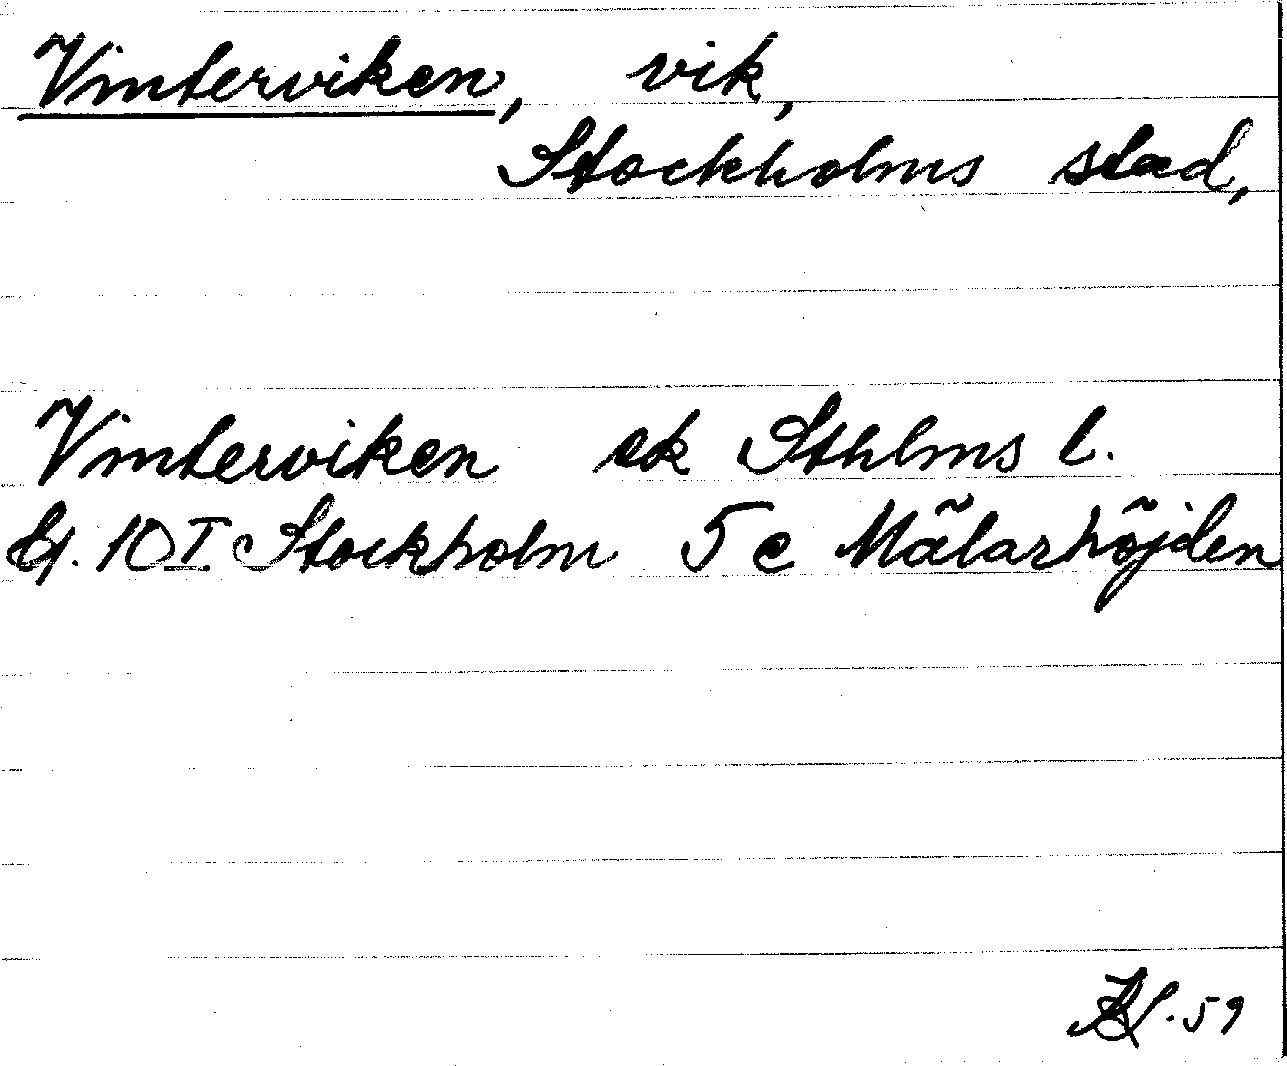 Vinterviken, vik,
Stockholms stad,
Vinterviken ek Sthlms l.
bl. 10 I Stockholm 5 e Mälarhöjden
59